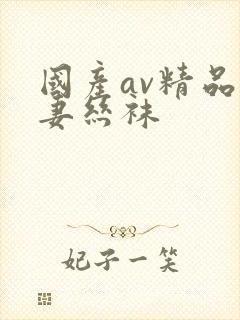 國產av精品
妻絲襪
妃子一笑